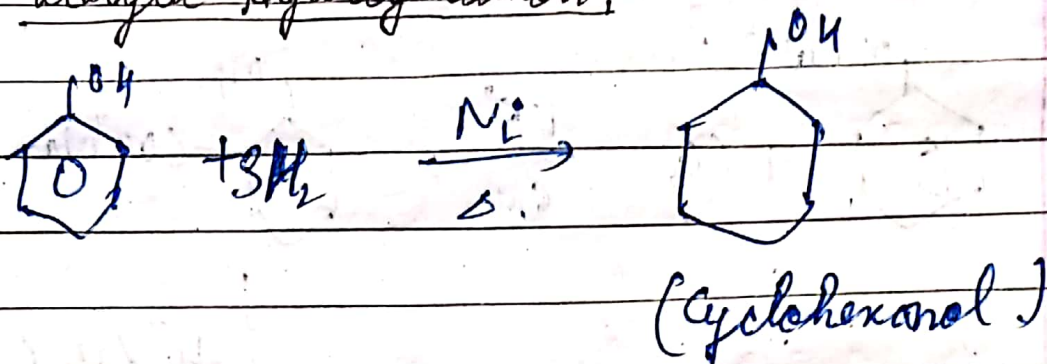 OH
OH
+3H₂
Ni
Δ
(Cyclohexanol)